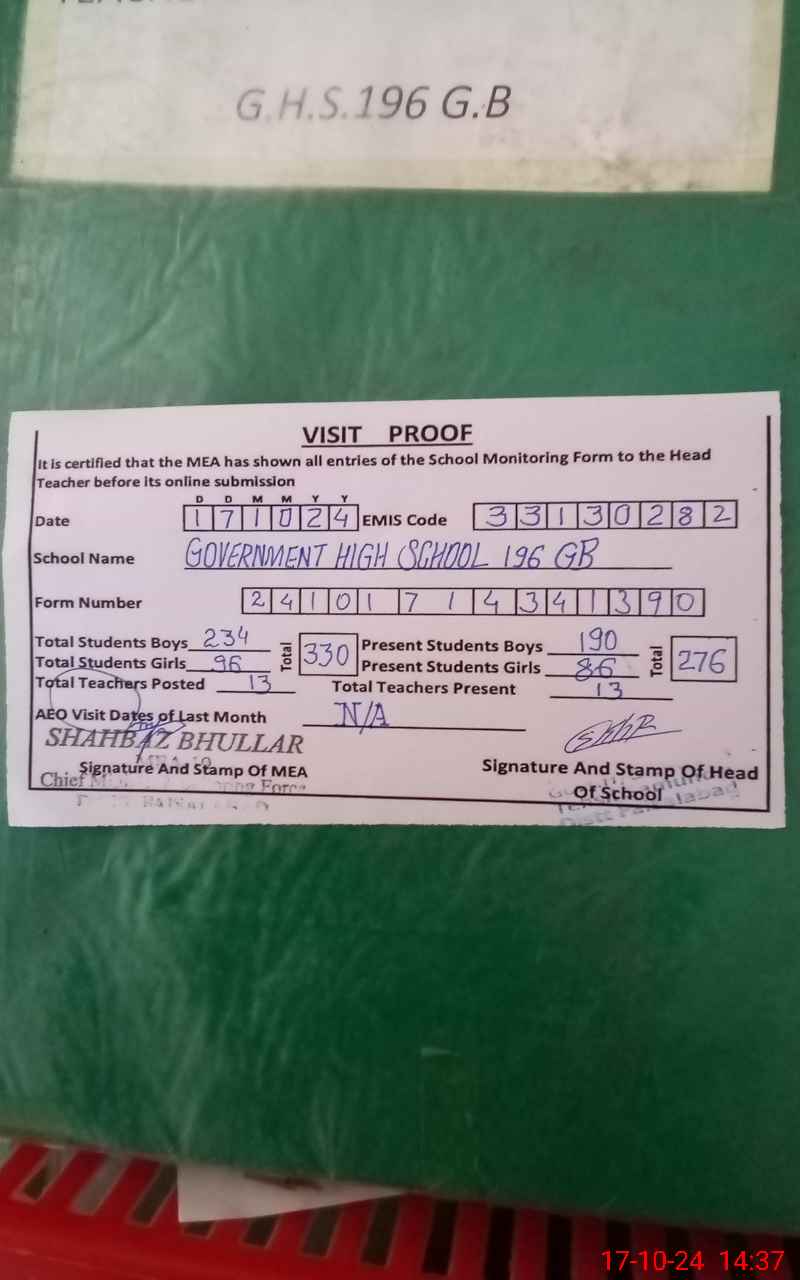 G.H.S.196 G.B
VISIT PROOF
It is certified that the MEA has shown all entries of the School Monitoring Form to the Head
Teacher before its online submission
D D M M Y Y
Date 1 7 1 0 2 4 EMIS Code 3 3 1 3 0 2 8 2
School Name GOVERNMENT HIGH SCHOOL 196 GB
Form Number 2 4 1 0 1 7 1 4 3 4 1 3 9 0
Total Students Boys 234 Total 330 Present Students Boys 190 Total 276
Total Students Girls 96 Present Students Girls 86
Total Teachers Posted 13 Total Teachers Present 13
AEO Visit Dates of Last Month N/A
SHAHBAZ BHULLAR
Signature And Stamp Of MEA Signature And Stamp Of Head
Chief Force Of School
Distt
17-10-24 14:37